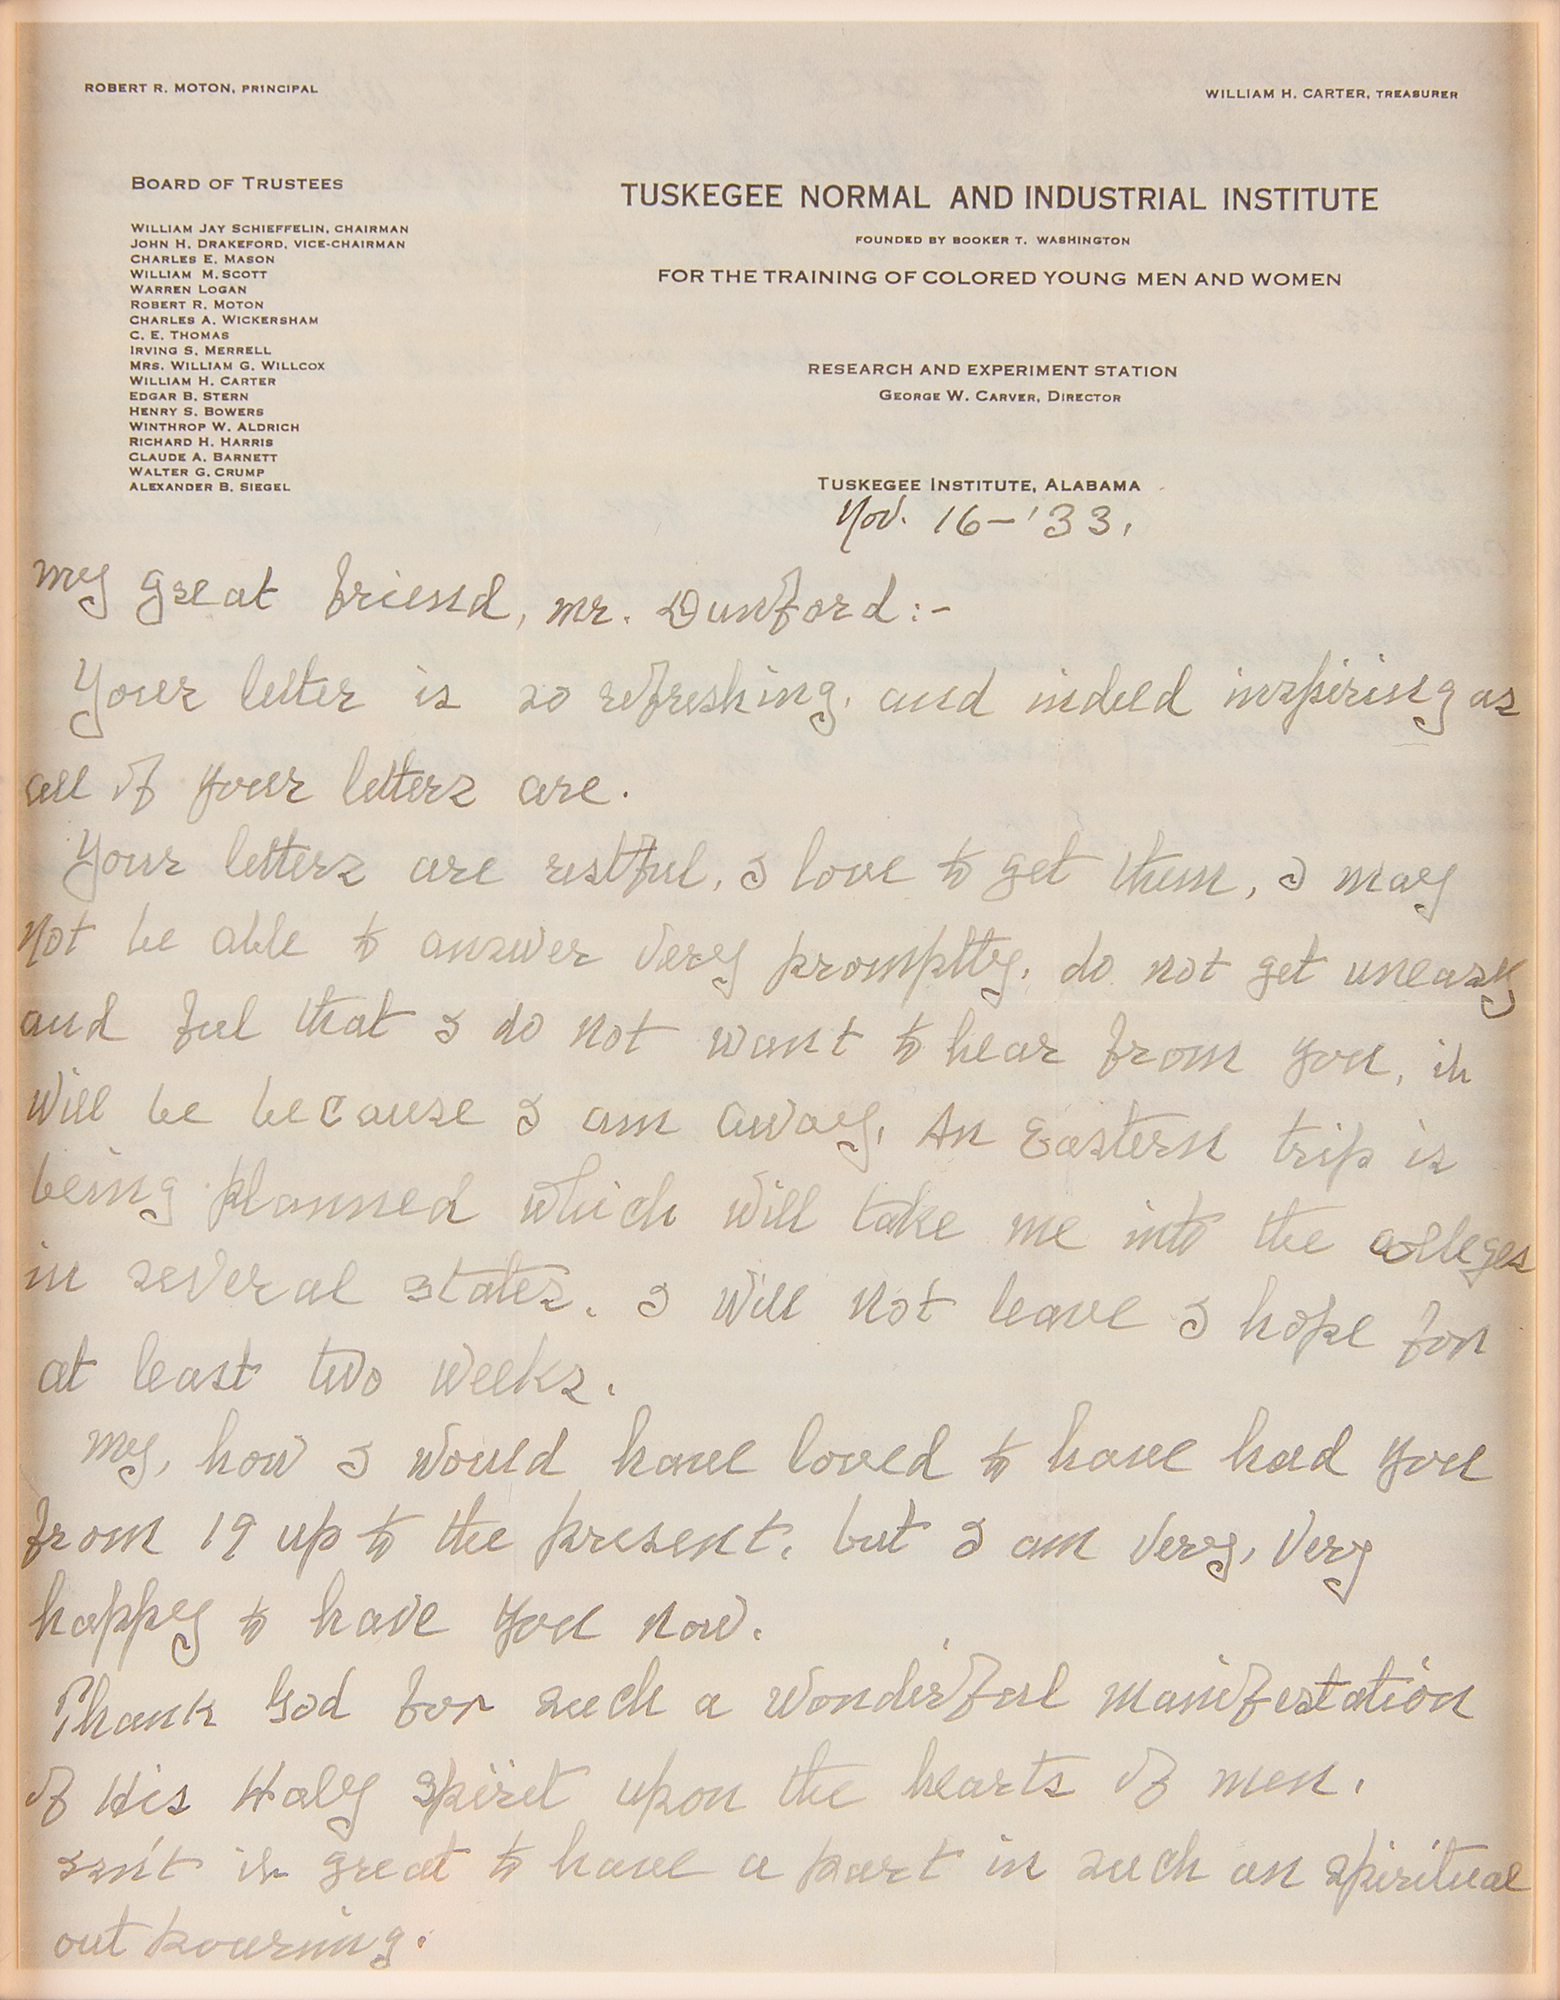 ROBERT R. MOTON, PRINCIPAL
WILLIAM H. CARTER, TREASURER
BOARD OF TRUSTEES
WILLIAM JAY SCHIEFFELIN, CHAIRMAN
JOHN H. DRAKEFORD, VICE-CHAIRMAN
CHARLES E. MASON
WILLIAM M. SCOTT
WARREN LOGAN
ROBERT R. MOTON
CHARLES A. WICKERSHAM
C. E. THOMAS
IRVING S. MERRELL
MRS. WILLIAM G. WILLCOX
WILLIAM H. CARTER
EDGAR B. STERN
HENRY S. BOWERS
WINTHROP W. ALDRICH
RICHARD H. HARRIS
CLAUDE A. BARNETT
WALTER G. CRUMP
ALEXANDER B. SIEGEL
TUSKEGEE NORMAL AND INDUSTRIAL INSTITUTE
FOUNDED BY BOOKER T. WASHINGTON
FOR THE TRAINING OF COLORED YOUNG MEN AND WOMEN
RESEARCH AND EXPERIMENT STATION
GEORGE W. CARVER, DIRECTOR
TUSKEGEE INSTITUTE, ALABAMA
Nov. 16-'33.
My great friend, Mr. Dunford:-
Your letter is so refreshing, and indeed inspiring as
all of your letters are.
Your letters are restful, I love to get them, I may
not be able to answer very promptly, do not get uneasy
and feel that I do not want to hear from you, it
will be because I am away. An Eastern trip is
being planned which will take me into the colleges
in several states. I will not leave I hope for
at least two weeks.
My, how I would have loved to have had you
from 19 up to the present, but I am very, very
happy to have you now.
Thank God for such a wonderful manifestation
of His Holy spirit upon the hearts of men.
Isn't it great to have a part in such an spiritual
out pouring.